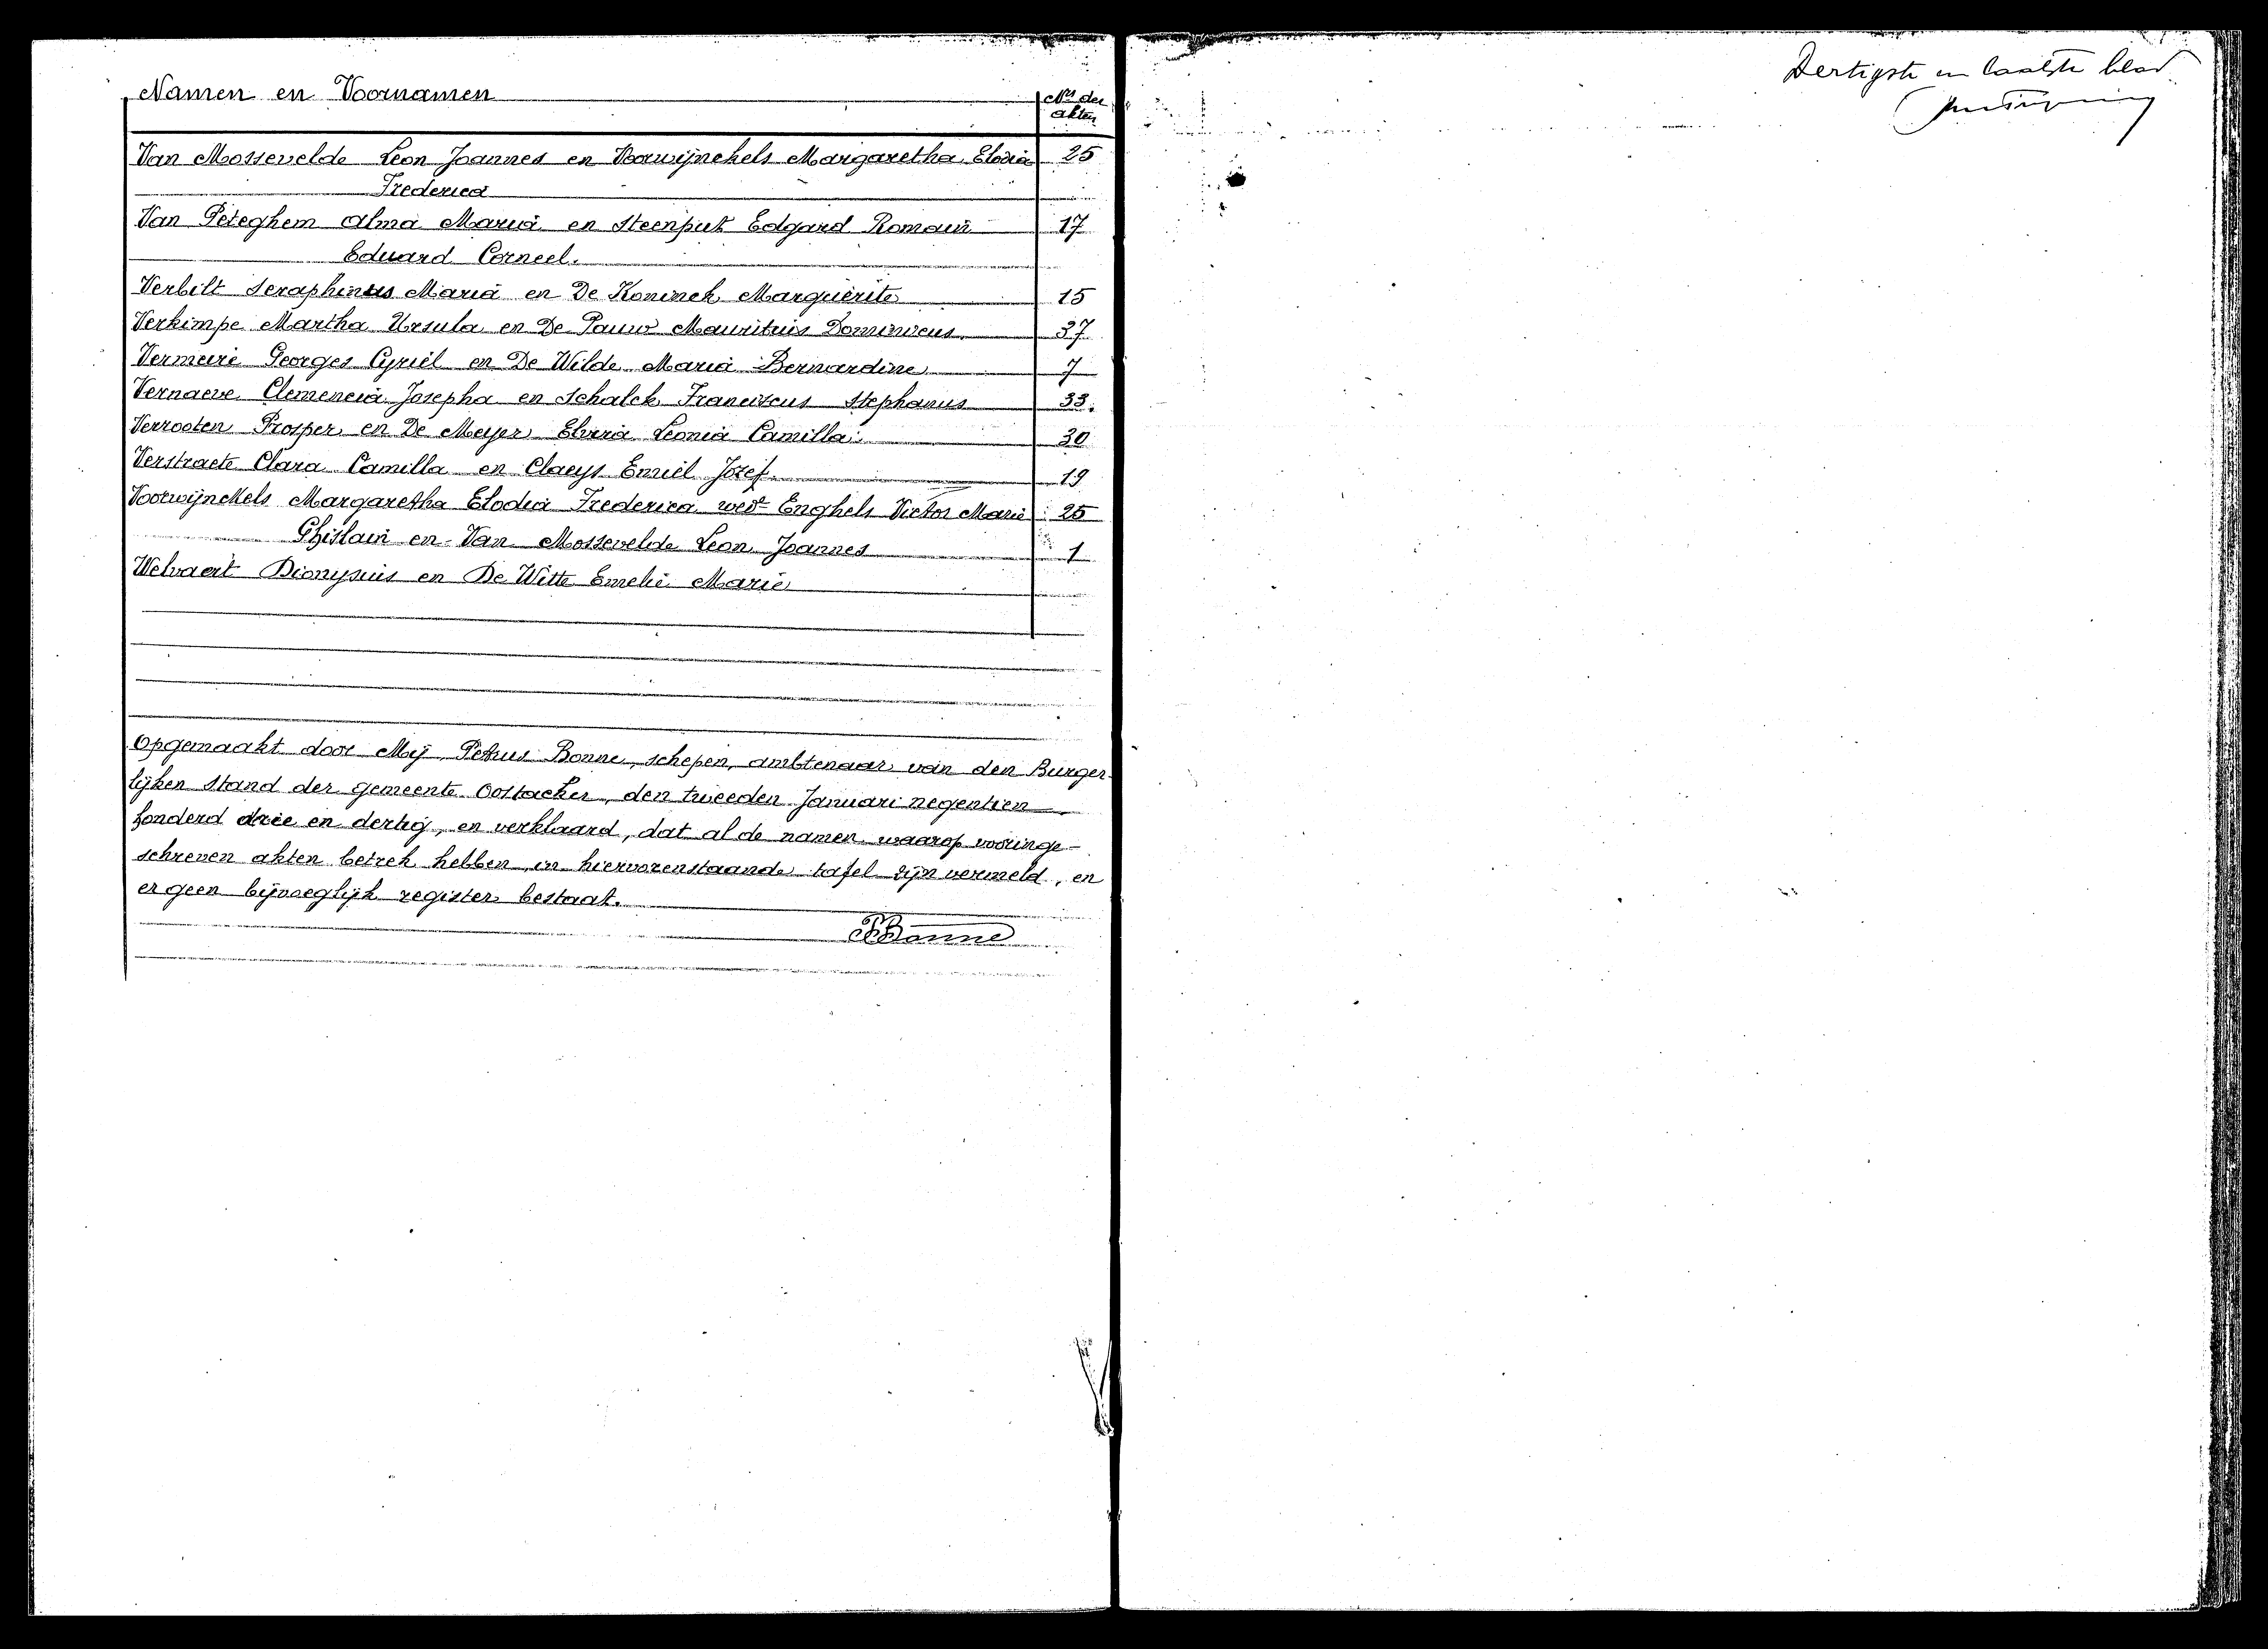 Namen en Voornamen
Nrs der akten
Van Mossevelde Leon Joannes en Voorwijnckels Margaretha Elodia 25
Frederica
Van Peteghem Alma Maria en Steenput Edgard Romain 17
Eduard Corneel.
Verbilt Seraphinus Maria en De Koninck Marguerite 15
Verkimpe Martha Ursula en De Pauw Mauritius Dominicus 37
Vermeire Georges Cyriel en De Wilde Maria Bernardine 7
Vernaeve Clemencia Josepha en Schalck Franciscus Stephanus 33.
Verrooten Prosper en De Meyer Elvira Leonia Camilla 30
Verstraete Clara Camilla en Claeys Emiel Jozef 19
Voorwijnckels Margaretha Elodia Frederica wed.e Enghels Victor Marie 25
Ghislain en Van Mossevelde Leon Joannes 1
Welvaert Dionysius en De Witte Emelie Marie
Opgemaakt door Mij Petrus Bonne, schepen, ambtenaar van den Burger-
lijken Stand der gemeente Oostacker, den tweeden Januari negentien
honderd drie en dertig, en verklaard, dat al de namen waarop vooringe-
schreven akten betrek hebben in hiervorenstaande tafel zijn vermeld, en
er geen bijvoeglijk register bestaat.
PBonne
Dertigste en laatste blad